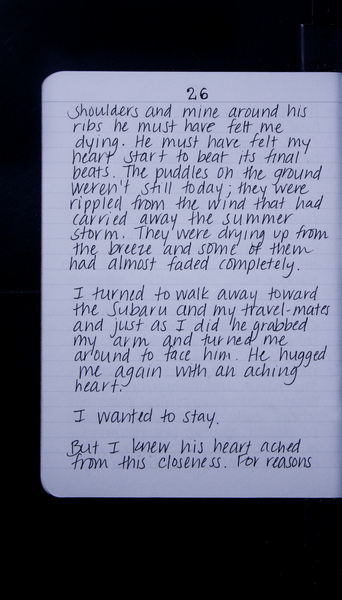 26
shoulders and mine around his
ribs he must have felt me
dying. He must have felt my
heart start to beat its final
beats. The puddles on the ground
weren't still today; they were
rippled from the wind that had
carried away the summer
storm. They were drying up from
the breeze and some of them
had almost faded completely.
I turned to walk away toward
the Subaru and my travel-mates
and just as I did he grabbed
my arm and turned me
around to face him. He hugged
me again with an aching
heart.
I wanted to stay.
But I knew his heart ached
from this closeness. For reasons